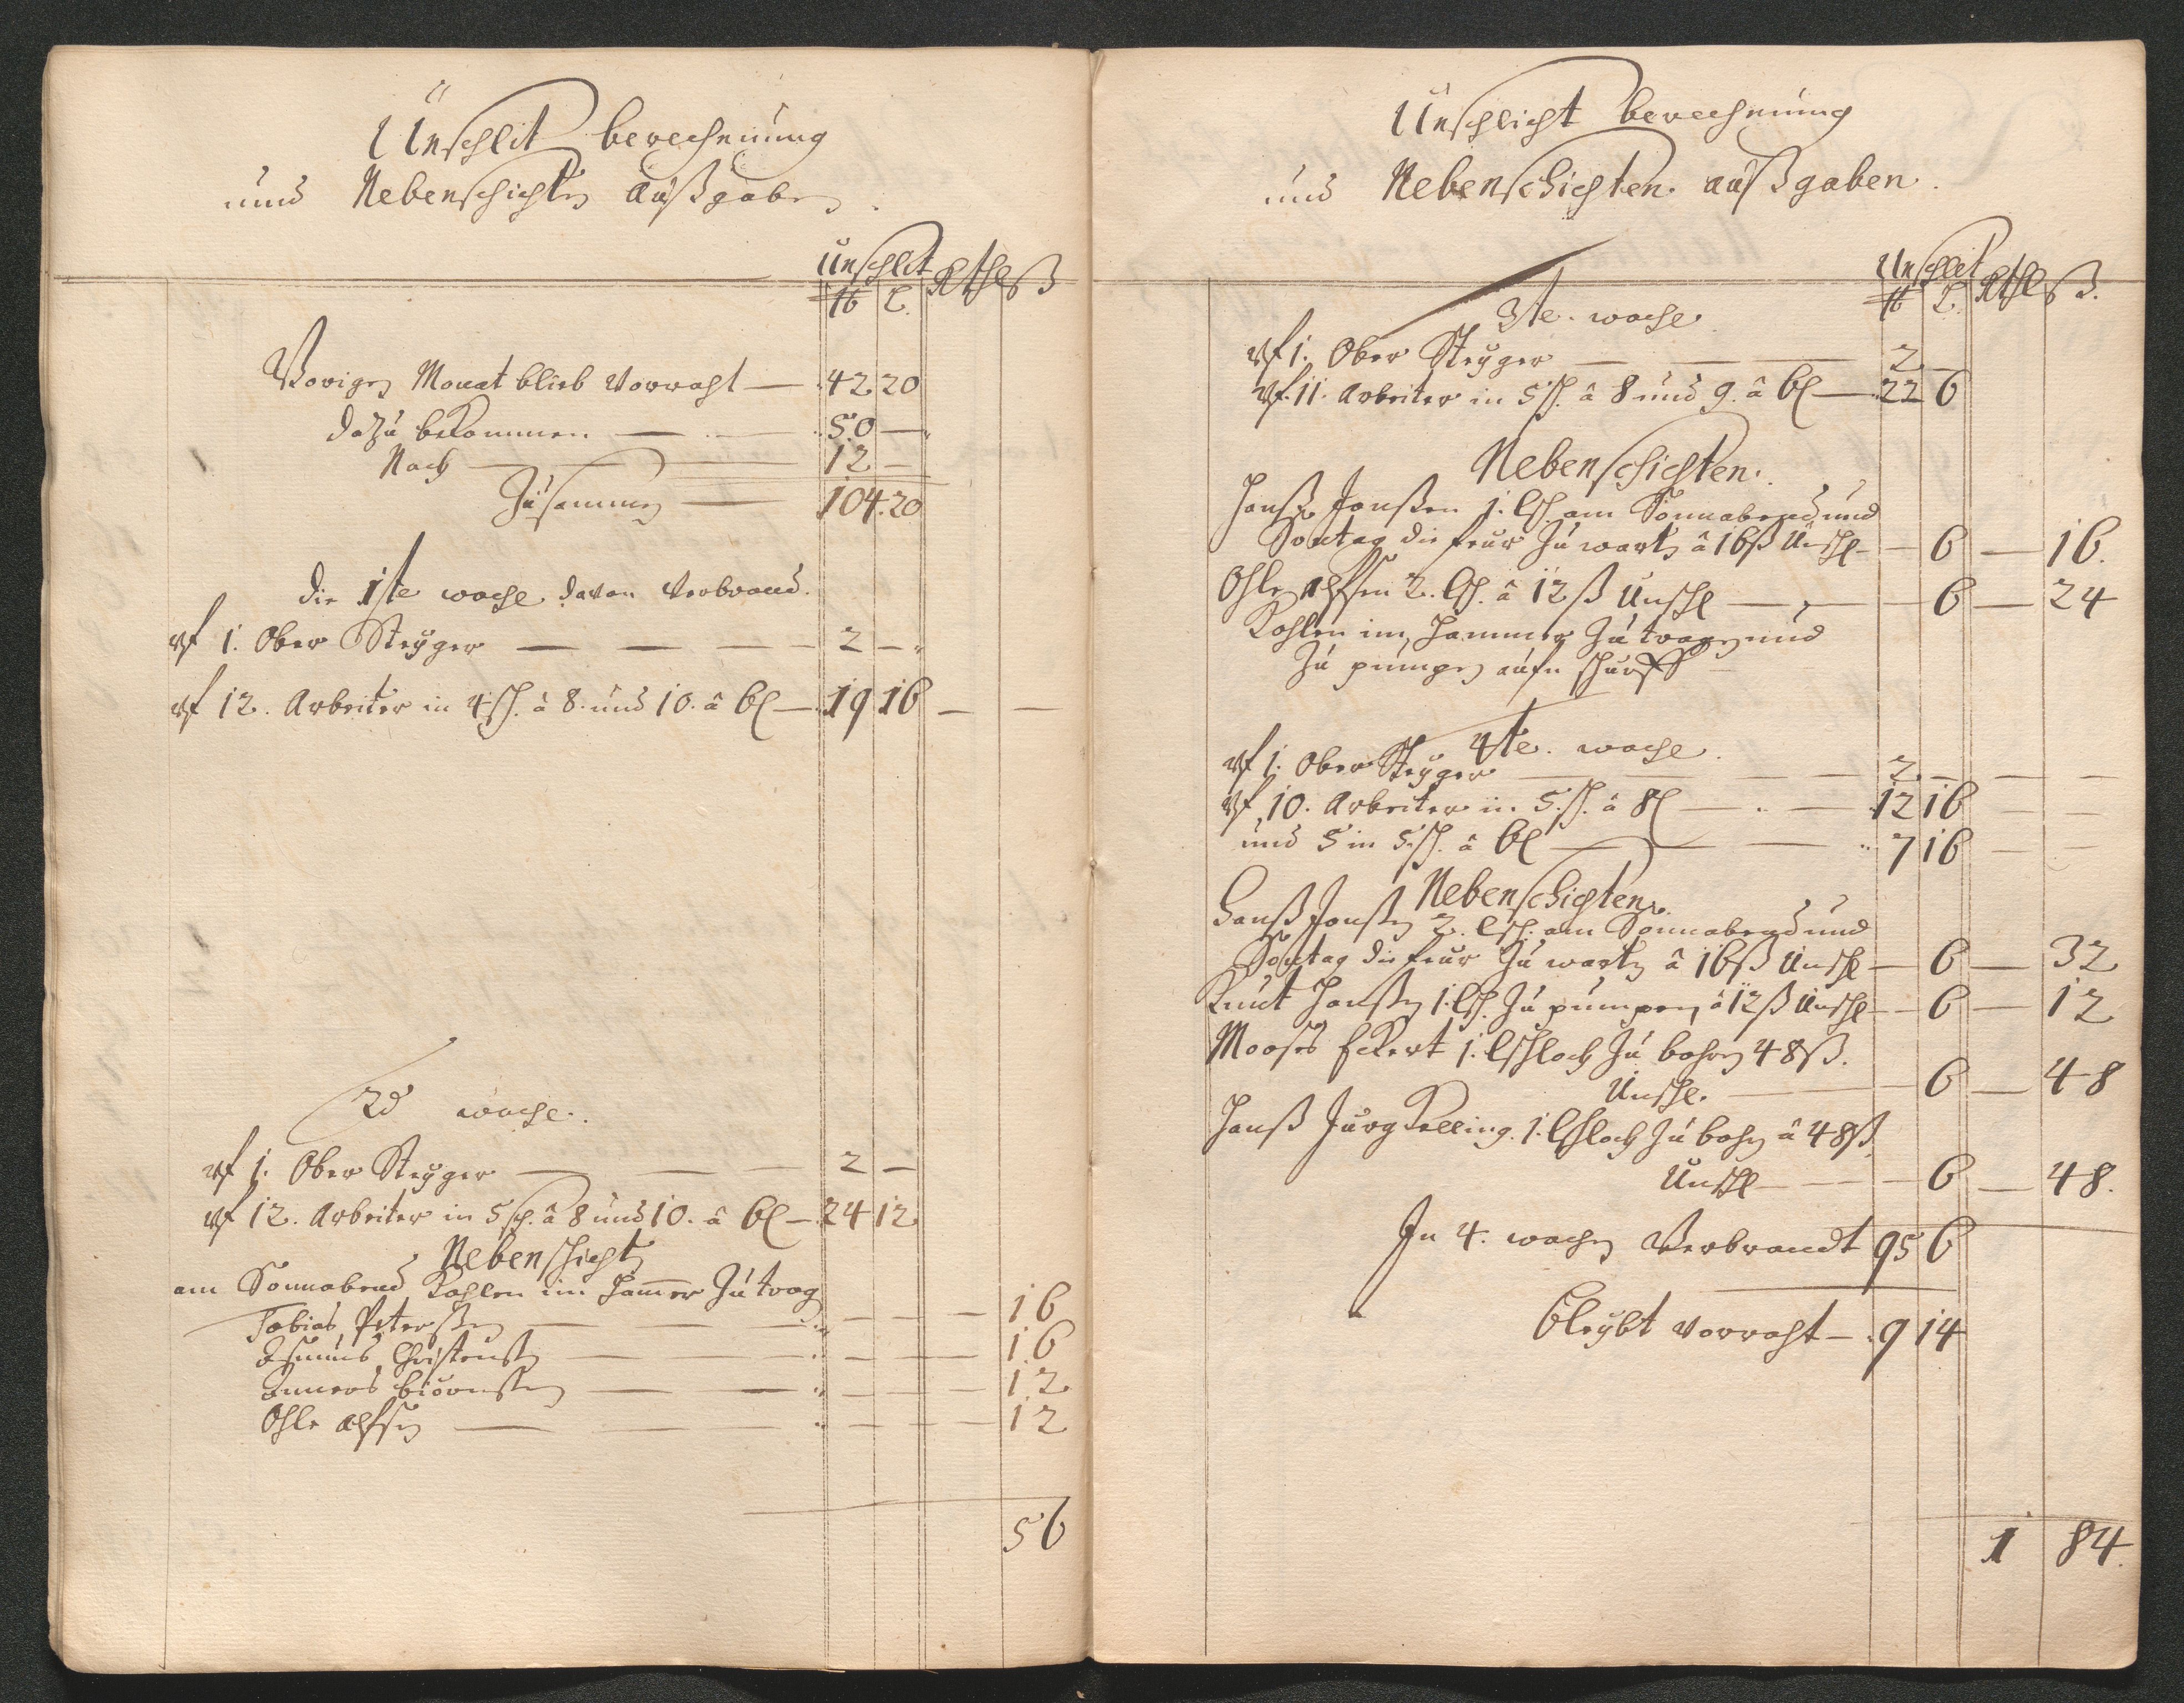 Unschlit berechnung
und Nebenschichten außgaben.
Unschlit Rthl ß
℔ L.
Vorigen Monat blieb Vorraht — 42 20
dazu bekommen — 50 —
Noch — 12 —
Zusammen — 104. 20
Die 1ste woche davon Verbrand.
uf 1. Ober Steyger — 2 —
uf 12. Arbeiter in 4 sch. â 8. und 10. â 6 l — 19 16 — —
2d woche.
uf 1. Ober Steyger — 2 —
uf 12. Arbeiter in 5 sch. â 8 und 10. â 6 l — 24 12
Nebenschichten
am Sonnabend Kohlen im Hamer zu trag
Tobias Peterßen — 16
Asmus Christenßen — 16
Anners biörnßen — 12
Ohle Alfsen — 12
56
Unschlicht berechnung
und Nebenschichten. außgaben.
Unschlit Rthl ß.
℔ L.
3te. woche
uf 1. Ober Steyger — 2 —
uf. 11. Arbeiter in 5 sch. â 8 und 9. â 6 l — 22 6
Nebenschichten.
Hanß Jonßen 1. lsch. am Sonnabend und
Sontag die feur zu warten â 16 ß Unschl — 6 — 16.
Ohle Alfsen 2. lsch. â 12 ß Unschl — 6 — 24
Kohlen im Hammer zu tragen und
zu pumpen aufn schurff
4te. woche.
uf 1. Ober Steyger — 2 — — —
uf. 10. Arbeiter in 5. sch. â 8 l — 12 16 — —
und 5 in 5. sch. â 6 l — 7 16 — —
Nebenschichten.
Hanß Jonßen 2. lsch. am Sonnabend und
Sontag die feur zu warten â 16 ß Unschl — 6 — 32
Knut Hanßen 1. lsch. zu pumpen, â 12 ß Unschl — 6 — 12
Moses Eckert 1. lschloch zu bohren 48 ß.
Unschl. — 6 — 48
Hanß Jurg Kelling. 1. lschloch zu bohren â 48 ß
Unschl — 6 — 48.
In 4. wochen Verbrandt 95 6
bleybt Vorraht — 9 14
1 84.